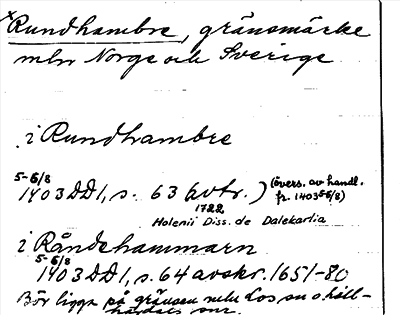 x Rundhambre, gränsmärke
mln Norge och Sverige
i Rundhambre
5-6/8
1403 DD1, s. 63 avtr.) (övers. av handl.
fr. 1403 5-6/8)
1722
Holenii Diss. de Dalekarlia
i Råndehammarn
5-6/8
1403 DD1, s. 64 avskr. 1651-80
Bör ligga på gränsen mln Los sn o häll-
sn.